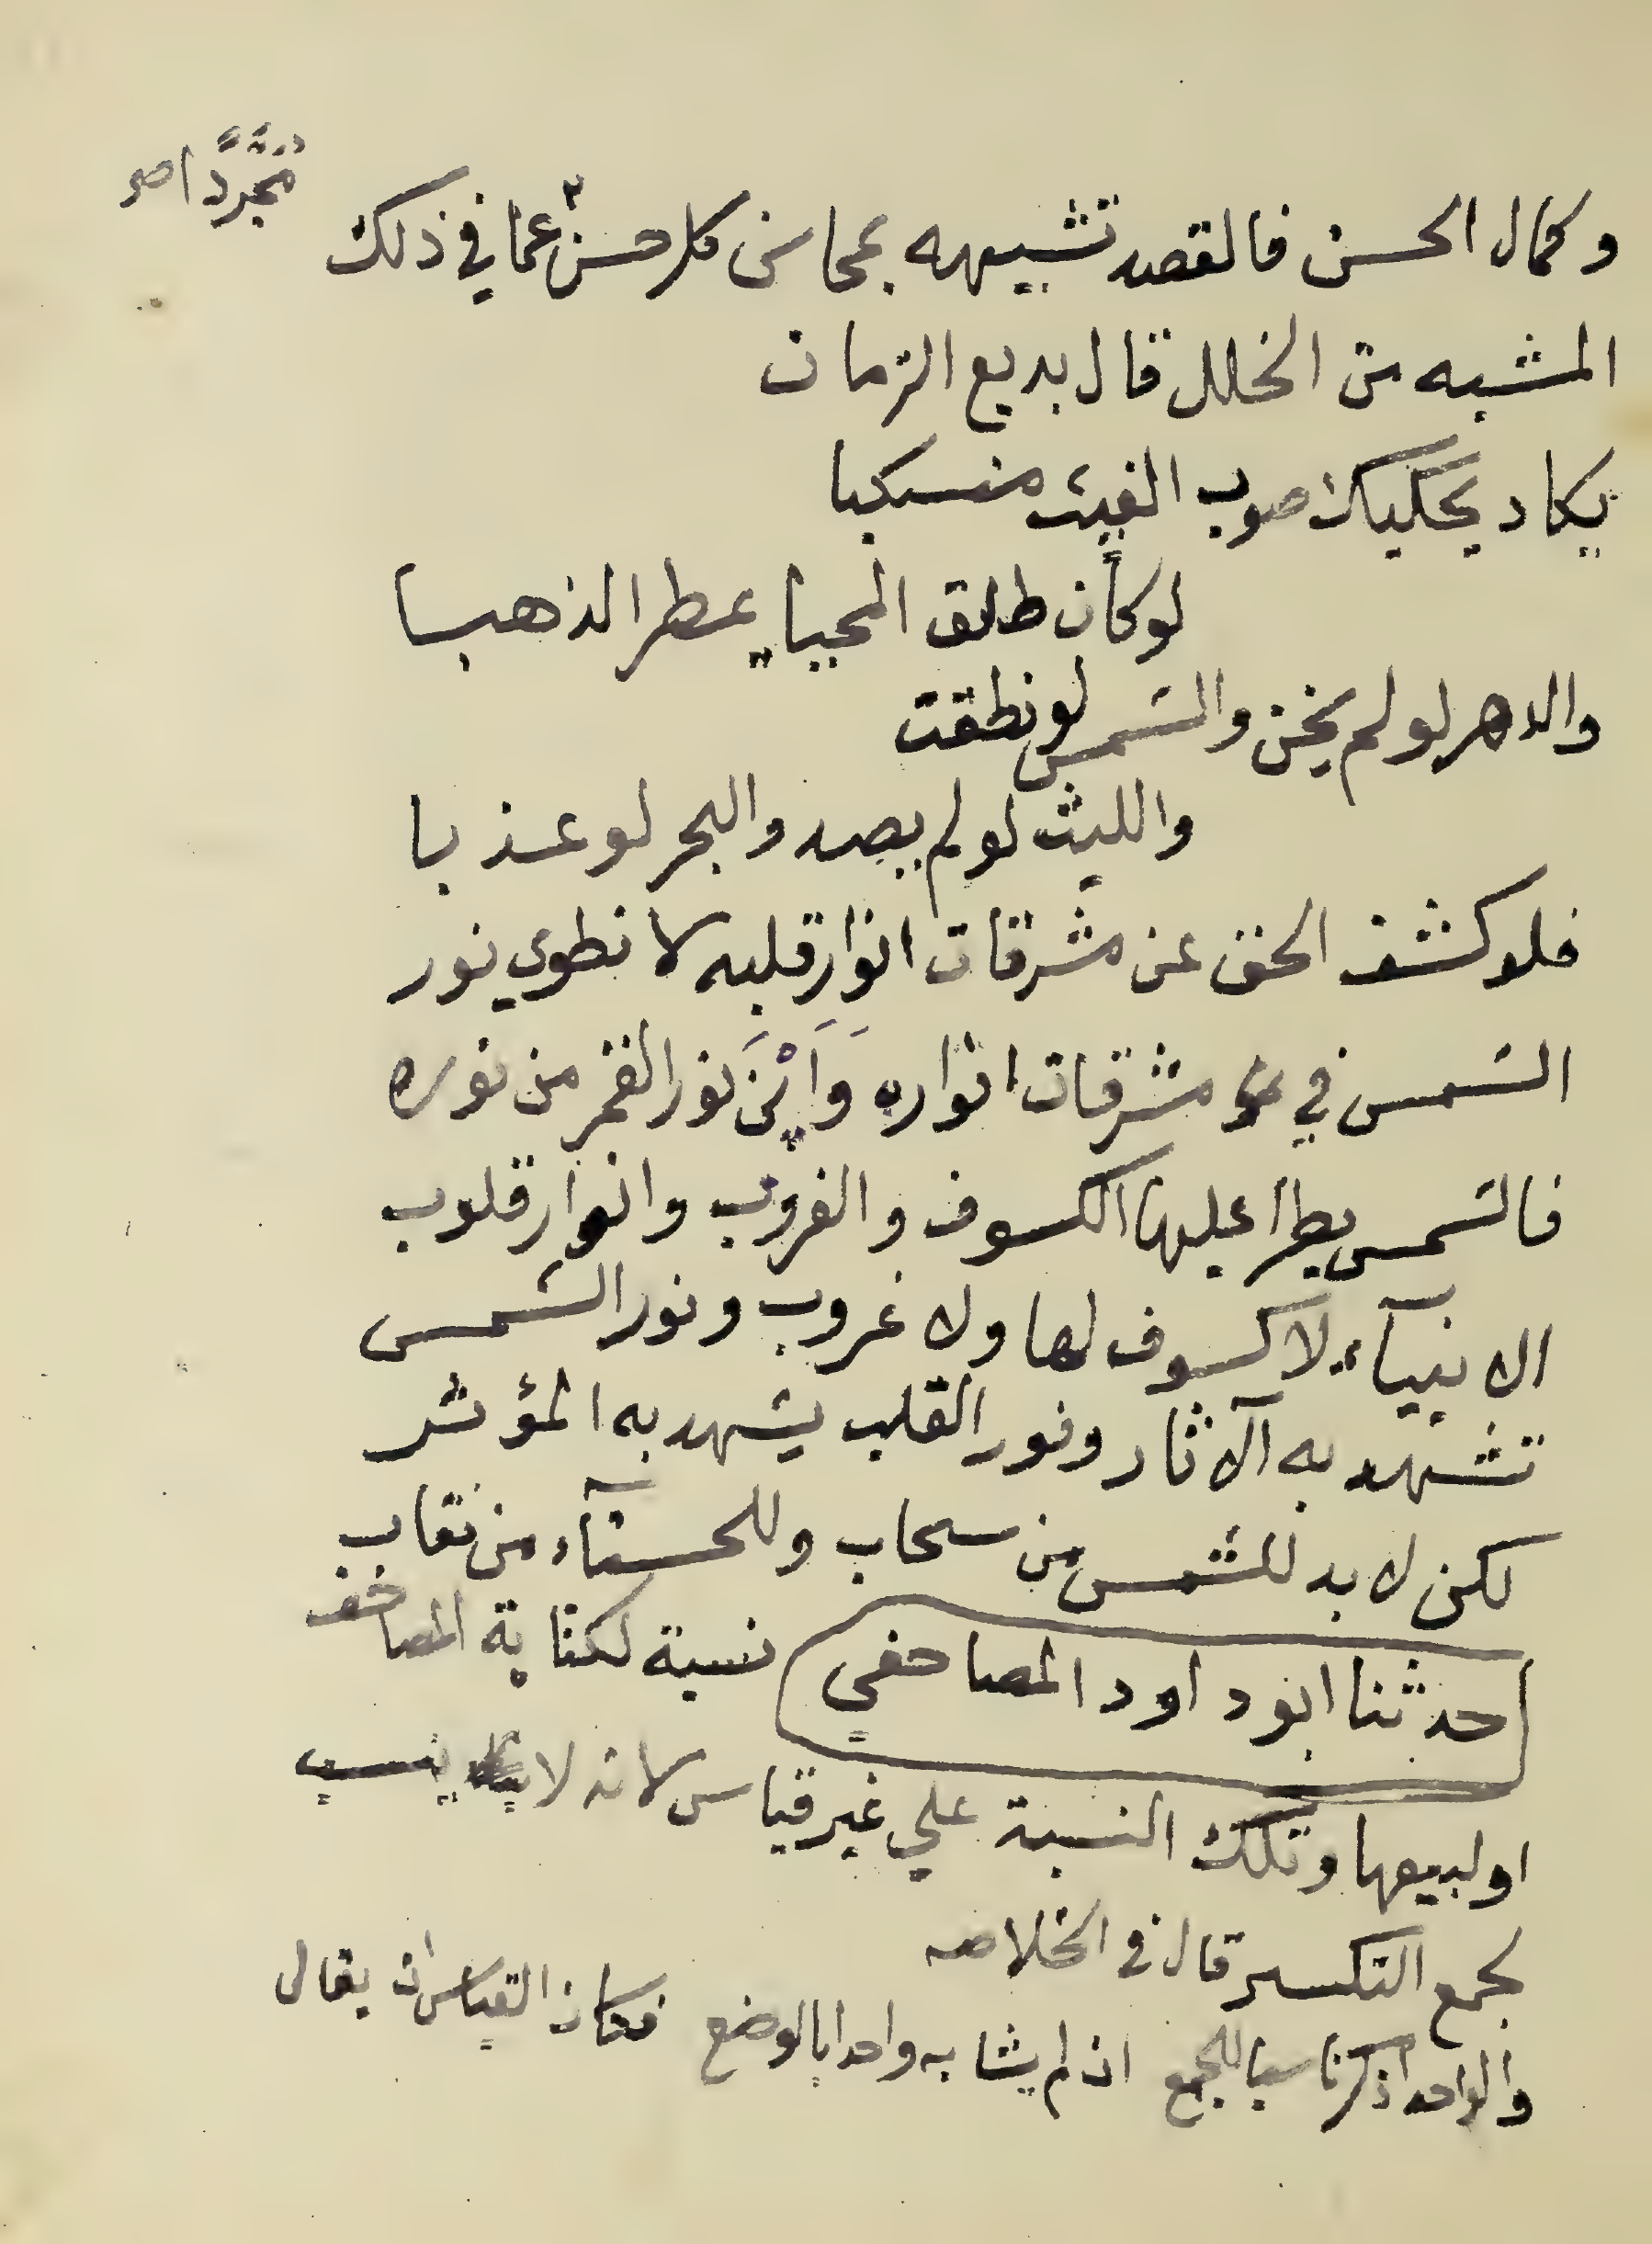 مجردا صح
وكمال الحسن فالقصد تشبيهه بمحاسن كل حسن ٢ عما في ذلك
المشبه من الخلل قال بديع الزمان
يكاد يحكيك صوب الغيث منسكبا
لو كان طلق المحيا يمطر الذهبا
والدهر لو لم يخن والشمس لو نطقت
والليث لو لم يصد والبحر لو عذبا
فلو كشف الحق عن مشرقات انوار قلبه لانطوى نور
الشمس في مشرقات انواره وَاَيْنَ نور القمر من نوره
فالشمس يطرأ عليها الكسوف والغروب وانوار قلوب
الانبيآء لا كسوف لها ولا غروب ونور الشمس
تشهد به الآثار ونور القلب يشهد به المؤثر
لكن لا بد للشمس من سحاب وللحسنآء من نقاب
حدثنا ابو داود المصاحفي نسبة لكتابة المصاحف
او لبيعها وتلك النسبة علي غير قياس لانه لا ينسب
لجمع التكسير قال في الخلاصه
والواحد اذكر ناسبا للجمع ان لم يشابه واحدا بالوضع فكان القياس ان يقال